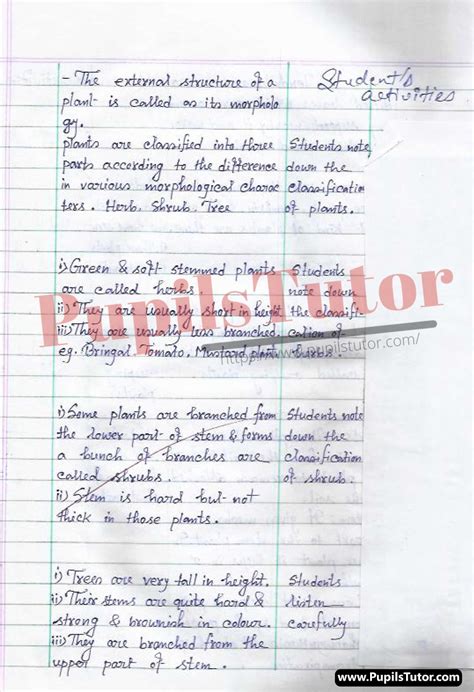 Student's
activities
- The external structure of a
plant is called as its morpholo
gy.
plants are classified into three Students note
parts according to the difference down the
in various morphological charac classification
ters. Herb, Shrub, Tree of plants.
i) Green & soft stemmed plants Students
are called herbs note down
ii) They are usually short in height the classifi-
iii) They are usually less branched. cation of
eg. Bringal, Tomato, Mustard plant herbs.
PupilsTutor
https://www.pupilstutor.com/
i) Some plants are branched from Students note
the lower part of stem & forms down the
a bunch of branches are classification
called shrubs. of shrub.
ii) Stem is hard but not
thick in those plants.
i) Trees are very tall in height. Students
ii) Their stems are quite hard & listen
strong & brownish in colour. carefully
iii) They are branched from the
upper part of stem.
www.PupilsTutor.Com